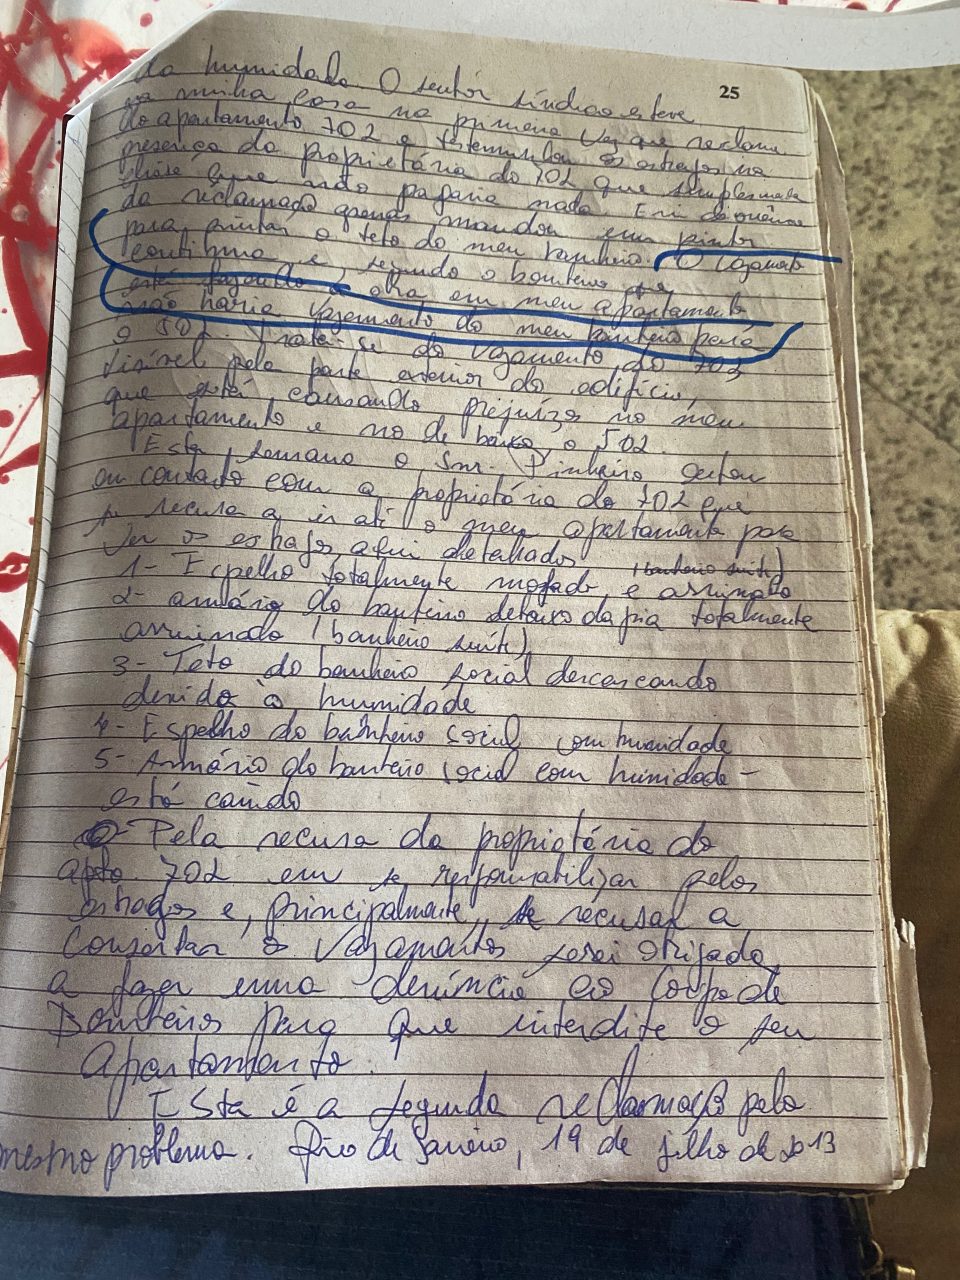 25
da humidade. O senhor síndico esteve
na minha casa na primeira vez que reclamei
do apartamento 702 e testemunhou os estragos na
presença da proprietária do 702 que simplesmente
disse que não pagaria nada. Em
da reclamação apenas mandou um pintor
para pintar o teto do meu banheiro. O vazamento
continua e, segundo o bombeiro que
está fazendo a obra em meu apartamento
não havia vazamento do meu banheiro para
o 502. Trata-se do vazamento do 702
visível pela parte exterior do edifício,
que está causando prejuízos no meu
apartamento e no de baixo, o 502.
Esta semana o Snr. Pinheiro entrou
em contato com a proprietária do 702 que
se recusa a ir até o meu apartamento para
ver os estragos aqui detalhados (banheiro suíte)
1- Espelho totalmente mofado e arruinado
2- armário do banheiro debaixo da pia totalmente
arruinado (banheiro suíte)
3- Teto do banheiro social descascando
devido à humidade
4- Espelho do banheiro social com humidade
5- Armário do banheiro social com humidade -
está caindo
Pela recusa da proprietária do
apto 702 em se responsabilizar pelos
estragos e, principalmente, se recusar a
consertar o vazamentos serei obrigada
a fazer uma denúncia ao Corpo de
Bombeiros para que interdite o seu
apartamento.
Esta é a segunda reclamação pelo
mesmo problema. Rio de Janeiro, 19 de julho de 2013